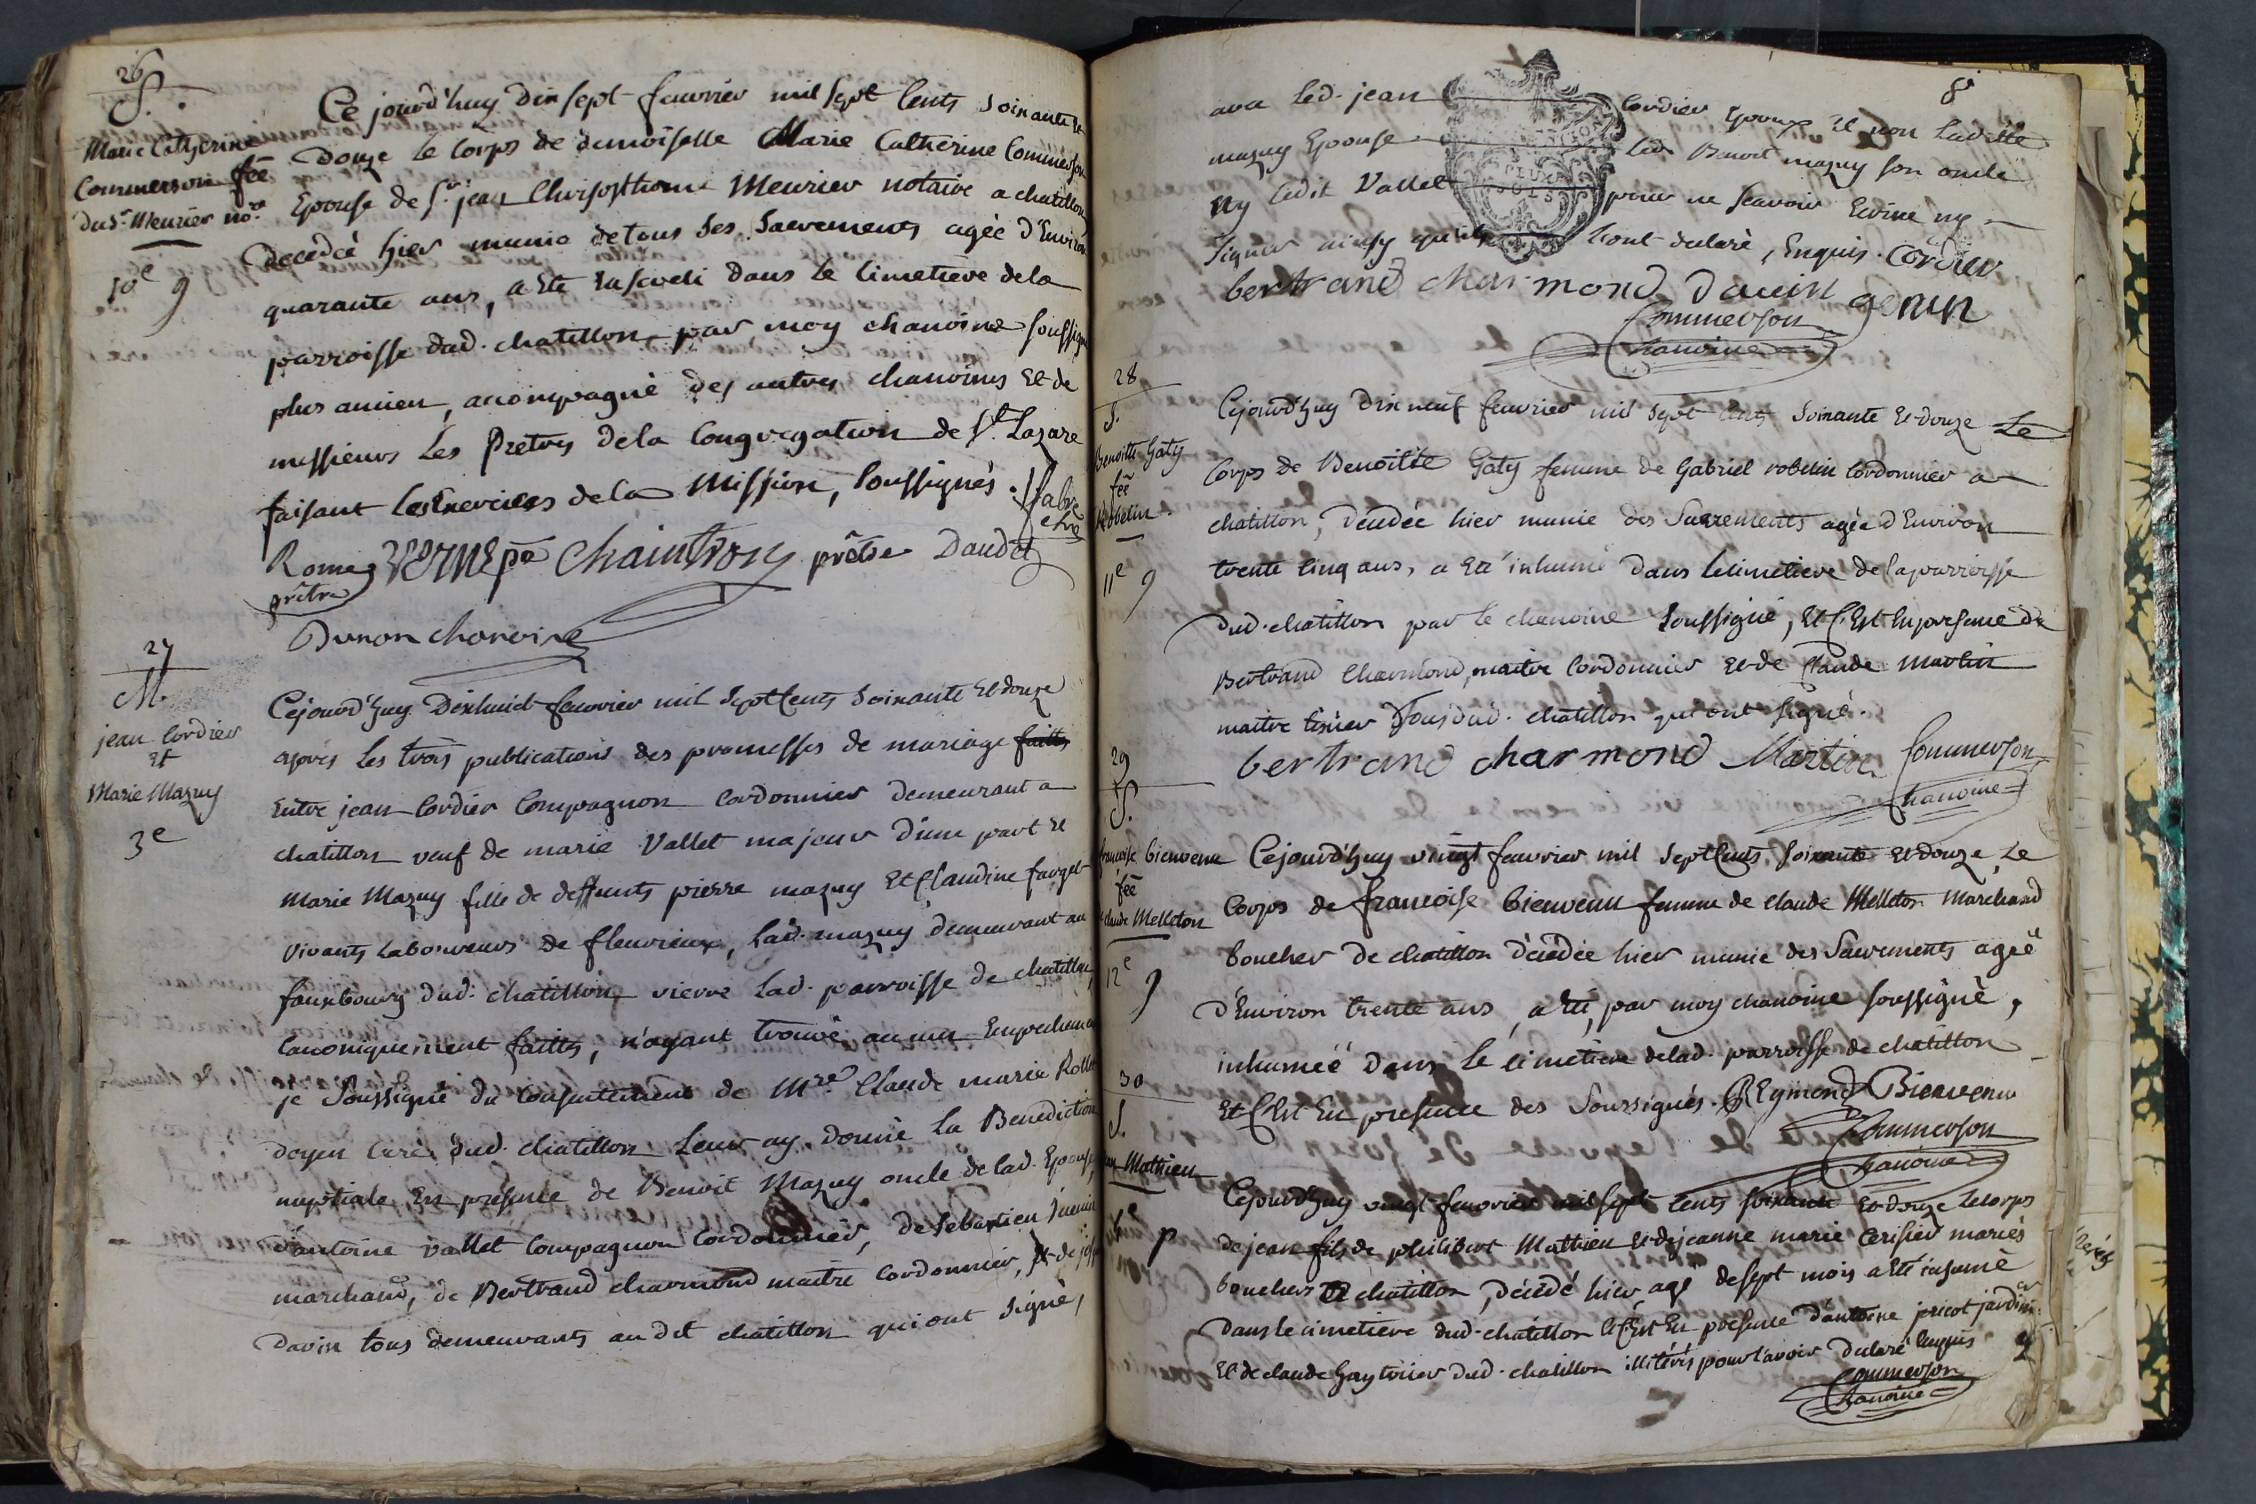 26
S.
Marie Catherine
Commerson fēē
du Sr. Meurier nore.
10e g
Ce jourd'huy dix sept feuvrier mil sept Cents soixante et
Douze Le Corps de demoiselle Marie Catherine Commerson
Epouse de Sr. jean Chrisosthome Meurier notaire a chatillon
decedcé hier munie de tous ses Sacrements agée d'Environ
quarante ans, a Eté Enseveli dans Le Cimetière de la
parroisse dud. chatillon par moy chanoine soussigné
plus ancien, accompagné des autres chanoines Et de
messieurs Les Pretres de la Congregation de St. Lazare
faisant Les Exercices de la Mission, soussignés.
Romey prêtre VERNE pe Chaintron prêtre Daudet
Dunon chanoine
27
M.
jean Cordier
Et
Marie Mazuy
3e
Cejourd'huy Dixhuit feuvrier mil sept Cents Soixante Et douze
après Les trois publications des promesses de mariage faittes
Entre jean Cordier Compagnon Cordonnier demeurant a
chatillon veuf de marie Vallet majeur d'une part Et
Marie Mazuy fille de deffunts pierre mazuy Et Claudine farget
vivants Laboureurs de fleurieux, Lad. mazuy demeurant au
fauxbourg dud. chatillon vierve Lad. parroisse de chatillon
Canoniquement faittes, n'ayant trouvé aucun Empechement
je Soussigné du Consentement de Mre Claude marie Rollet
doyen Curé dud. chatillon Leur ay donné La Benediction
nuptiale En présence de Benoit Mazuy oncle de lad. Epouse,
d'antoine vallet Compagnon Cordonnier, de sebastien
marchand, de Bertrand charmond maitre cordonnier, Et de
Davin tous demeurants au dit chatillon qui ont signé,
8
avec Led. jean Cordier Epoux Et non Laditte
mazuy Epouse Led. Benoit mazuy son oncle
Ny Ledit Vallet pour ne scavoir Ecrire ny
signer ainsy qu'ils L'ont declaré, Enquis. Cordier
bertrand charmond Dauin genin
Commerson
Chanoine
28
S.
Benoitte Gaty
fēē
Robelin.
11e g
Cejourd'huy Dix neuf feuvrier mil sept cents Soixante Et douze Le
Corps de Benoitte Gaty femme de Gabriel robelin Cordonnier a
chatillon, décédée hier munie des Sacrements agée d'Environ
trente Cinq ans, a Eté inhumé dans Le Cimetiere de la parroisse
dud. chatillon par le chanoine Soussigné, Et C'Est En presence de
Bertrand Charmond, maitre Cordonnier Et de Claude Martin
maitre tisier Tous dud. chatillon qui ont signé.
bertrand charmond Martin Commerson
Chanoine
29
S.
françoise bienvenu
fēē
Claude Melleton
12e g
Cejourd'huy vingt feuvrier mil sept Cents soixante Et douze, Le
Corps de françoise bienvenu femme de claude Melleton Marchand
boucher de chatillon décédée hier munie des Sacrements agée
d'Environ trente ans, a Eté, par moy chanoine soussigné,
inhumée dans Le cimetiere de lad. parroisse de chatillon
Et C'Est En presence des Soussignés. REymond Bienvenu
Commerson
Chanoine
30
S.
Mathieu
p
Cejourd'huy vingt feuvrier mil sept Cents soixante Et douze Le corps
de jean fils de philibert Mathieu Et de jeanne marie Cerisier mariés
bouchers de chatillon, décédé hier, agé de sept mois a Eté inhumé
dans Le cimetiere dud. chatillon C'Est En presence d'antoine pricot jardinier
Et de claude Gay dud. chatillon illitérés pour l'avoir declaré Enquis
Commerson
Chanoine